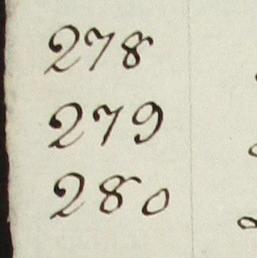 278
279
280